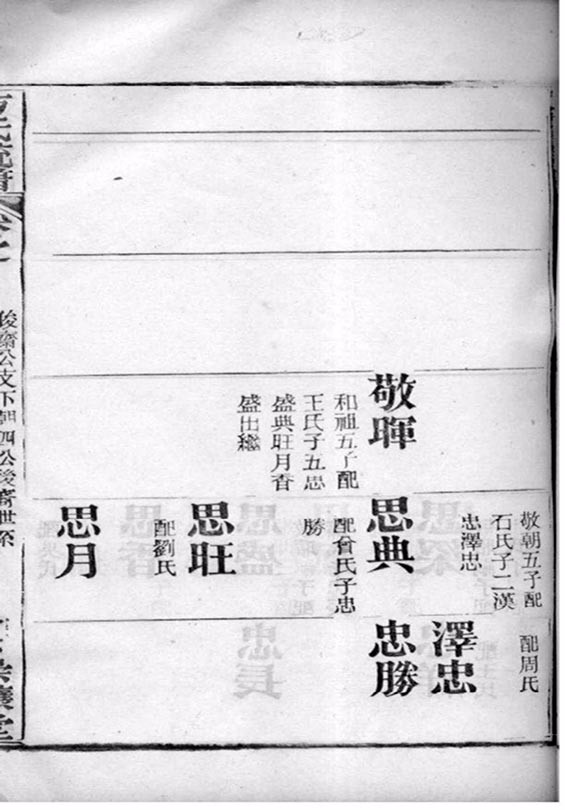 敬朝五子配
石氏子二漢
忠澤忠
配周氏
澤忠
敬暉
和祖五子配
王氏子五思
盛典旺月香
盛出繼
思典
配曾氏子忠
勝
忠勝
思旺
配劉氏
思月
俊齋公支下朝四公後裔世系